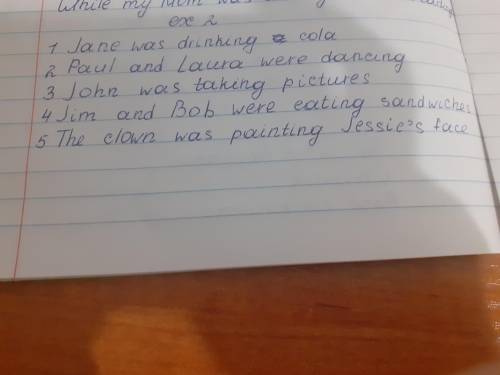 While my mum was
ex 2
1 Jane was drinking cola
2 Paul and Laura were dancing
3 John was taking pictures
4 Jim and Bob were eating sandwiches
5 The clown was painting Jessie's face